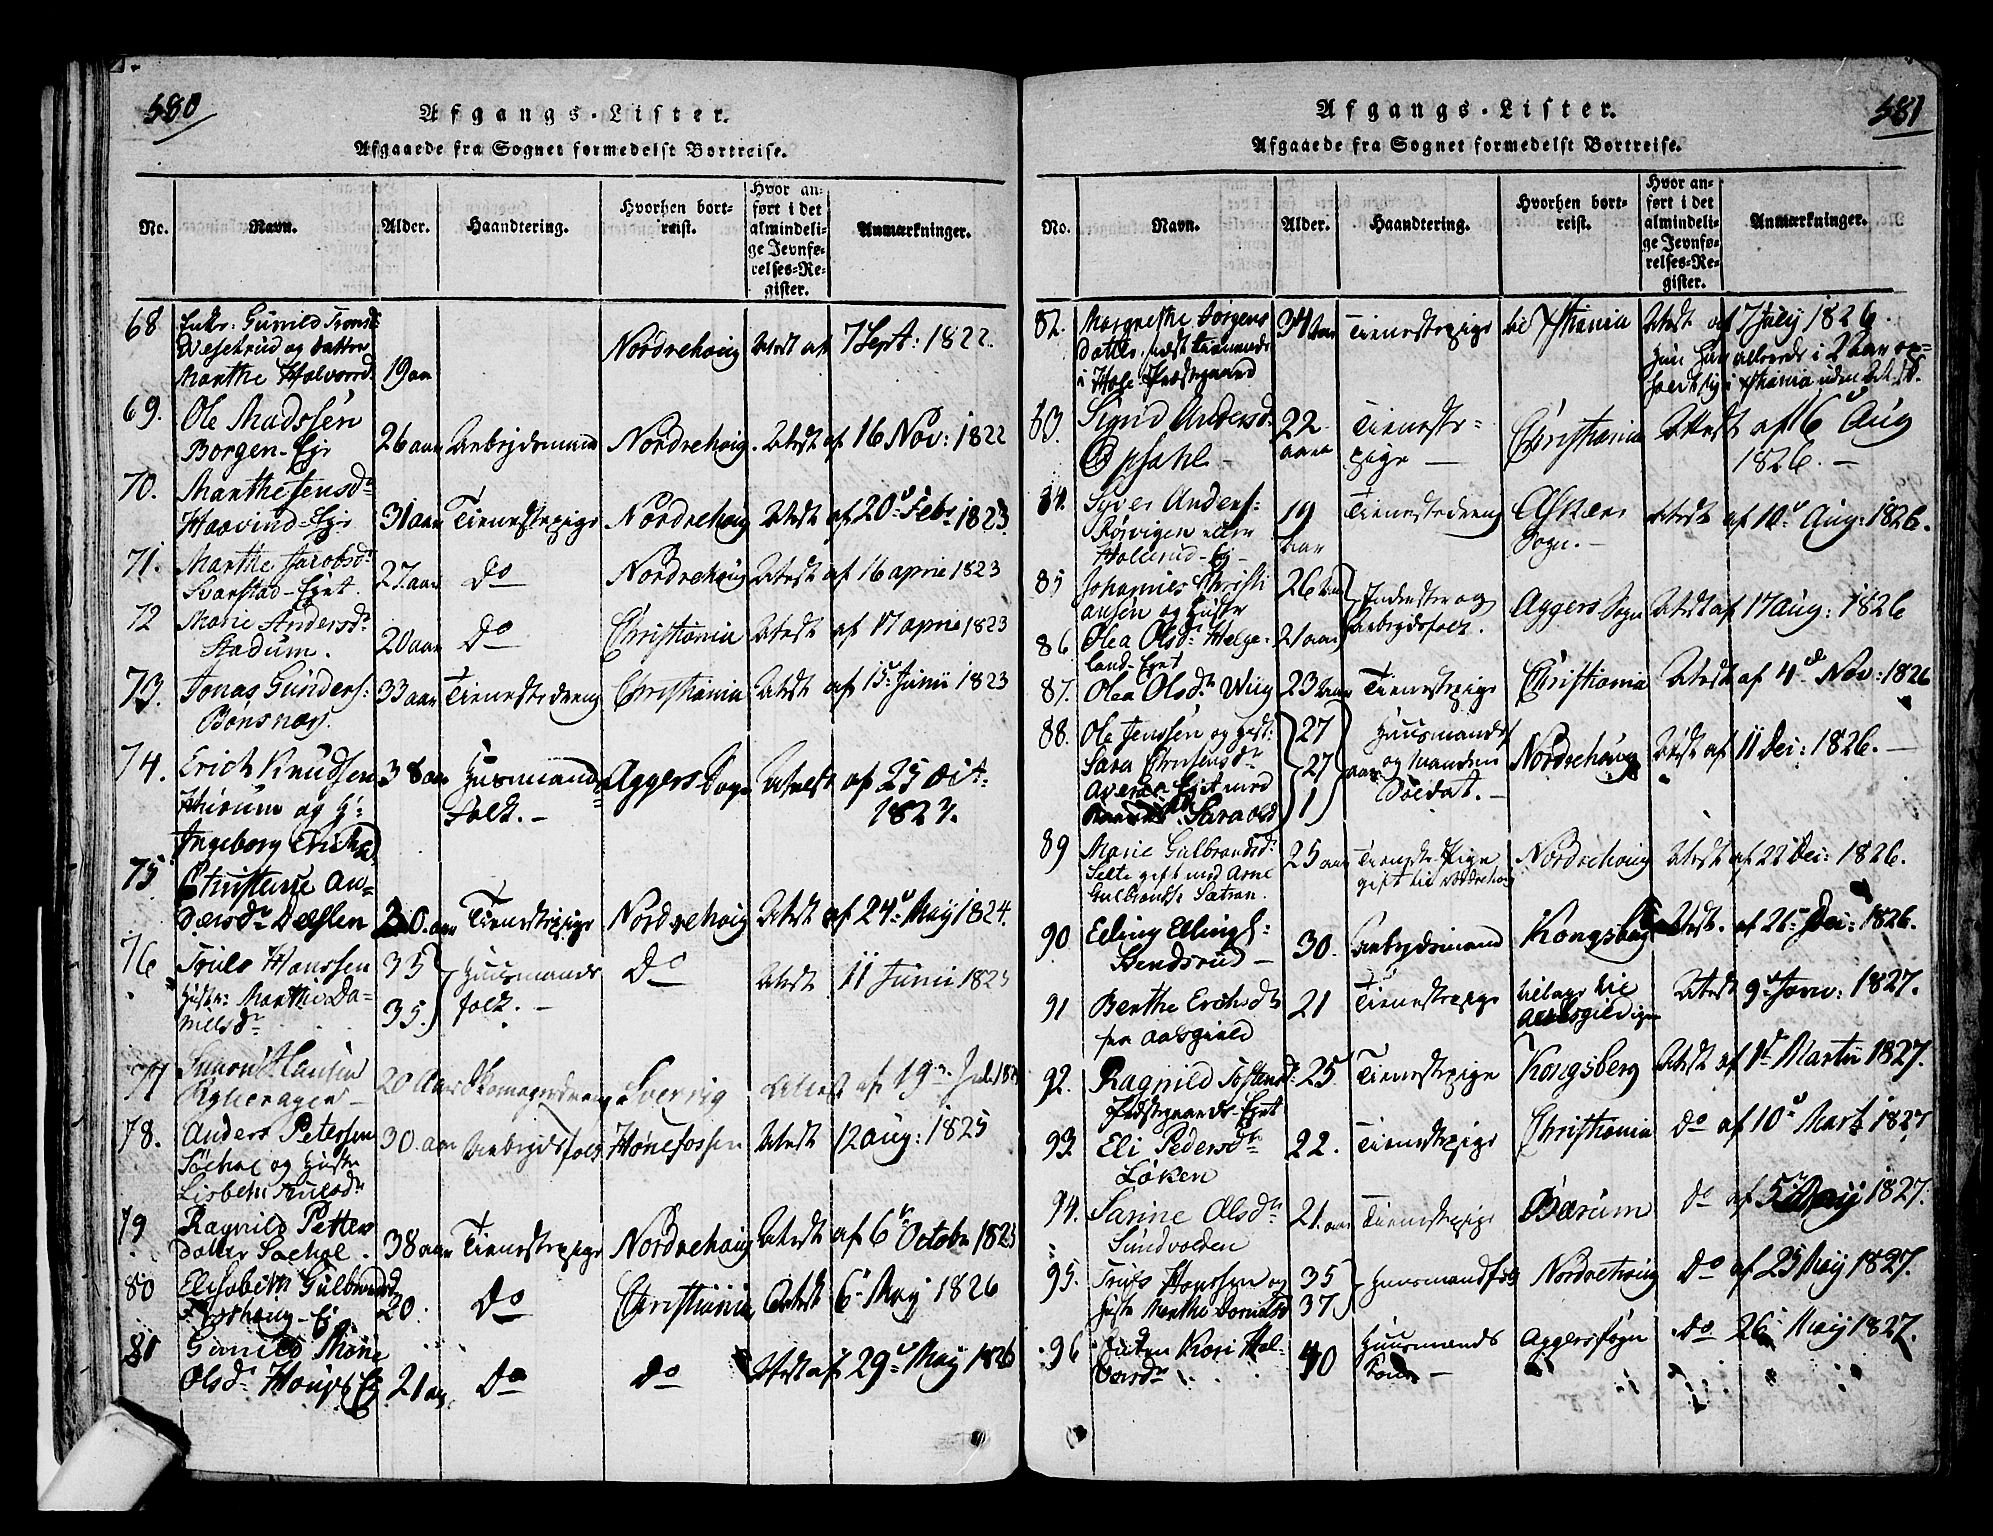 580
Afgangs-Lister.
Afgaaede fra Sognet formedelst Bortreise.
No. Navn. Alder. Haandtering. Hvorhen bortreist. Hvor anført i det almindelige Jevnførelses-Register. Anmærkninger.
68 Enke: Gunild Tronsd:
og Datter
Marthe Halvorsd. 19 aar Nordrehoug Attest af 7 Sept: 1822.
69. Ole Madssen
Borgen-Eje 26 aar Arbejdsmand Nordrehoug Attest af 16 Nov: 1822
70. Marthe Jensdr
Haavind-Eje 31 aar Tienestepige Nordrehoug Attest af 20de Febr 1823.
71. Marthe Jacobsdr
Svarstad-Ejet. 27 aar Do Nordrehoug Attest af 16 april 1823
72 Marie Andersdr
Stadum. 20 aar Do Christiania Attest af 17 april 1823
73. Jonas Gunders:
Bønsnæs. 33 aar Tienestedreng Christiania Attest af 15 Junii 1823
74. Erich Knudsen
og H:
Ingeborg Erichsd 38 aar Huusmands
Folk. - Aggers Sogn Attest af 25 Oct.
1823.
75 Christense An=
dersdr 30 aar Tienestepige Nordrehoug Attest af 24de May 1824.
76 Truls Hanssen
Hustr: Marthe Da=
nielsdr 35
35. Huusmands
folk. - Do Attest 11 Junii 1825
77 Simon Hansen
20 Aar Sverrig Attest af 19de
78. Anders Petersen
Søehol og Hustr
Lisbeth Trulsdr 30 aar Arbejdsfolk Hønefossen Attest 12 aug: 1825
79 Ragnild Petters
datter Søehol. 38 aar Tienestepige Nordrehoug Attest af 6te October 1825
80 Elisabeth Gulbrandsd
Eje 20. Do Christiania Attest 6te May 1826
81 Gunild Marie
Olsdr Eje 21 aar Do do Attest af 29de May 1826
581
Afgangs-Lister.
Afgaaede fra Sognet formedelst Bortreise.
No. Navn. Alder. Haandtering. Hvorhen bortreist. Hvor anført i det almindelige Jevnførelses-Register. Anmærkninger.
82. Margrethe Jørgens
datter, sidst tienende
i Hole Præstegaard 34 Aar Tienestepige til Xtiania Attest af 7 July 1826.
Hun har allerede i 2 Aar op=
holdt sig i Xtiania uden Attest.
83. Sigrid Andersd:
Opsahl - 22
aar Tieneste=
pige - Christiania Attest af 16de Aug
1826. -
84. Syver Anders:
Røsvigen eller
Eje - 19
aar Tienestedreng Askers
Sogn. - Attest af 10de Aug: 1826.
85 Johannes Christi
ansen og Hustr 26 Aar Inderster og
Arbejdsfolk. Aggers Sogn Attest af 17 Aug: 1826
86 Olea Olsdr Helge=
land-Ejet 21 aar
87. Olea Olsdr Wiig 23 aar Tienestepige Christiania Attest af 4de Nov: 1826
88. Ole Jenssen og Hust:
Sara Christensdr
Ejet med
27
27 aar
1 Huusmands
og Manden
Soldat. - Nordrehoug Attest af 11 Dec: 1826. -
89 Marie Gulbrandsdr
Selte gift med Arne
Gulbrands. Sætran. 25 aar Tieneste Pige
gift til Nordrehoug Nordrehoug Attest af 22 Dec: 1826.
90. Elling Ellings:
Bendsrud - 30. Arbejdsmand Kongsberg Attest. af 26de Dec: 1826.
91 Berthe Erichsdr
fra Aalsgield 21 Tienestepige tilbage til
Attest 9de Janv: 1827.
92. Ragnild Tostensd.
Præstegaards-Ejet 25. Tienestepige Kongsberg Attest af 1ste Martii 1827.
93. Eli Pedersdr
Løken 22. Tienestepige Christiania Do af 10de Marts 1827
94. Sarine Olsdr
Sundvolden 21. aar Tienestepige Bærum Do af 5te Maij 1827.
95. Truls Hanssen og
Hustr Marthe Danielsd 35
37 Huusmandsfolk Nordrehoug Do af 25 Maij 1827.
96 Enken Kari Hal=
vorsdr 40 Huusmands
Kone - Aggersogn Do 26 Maij 1827.